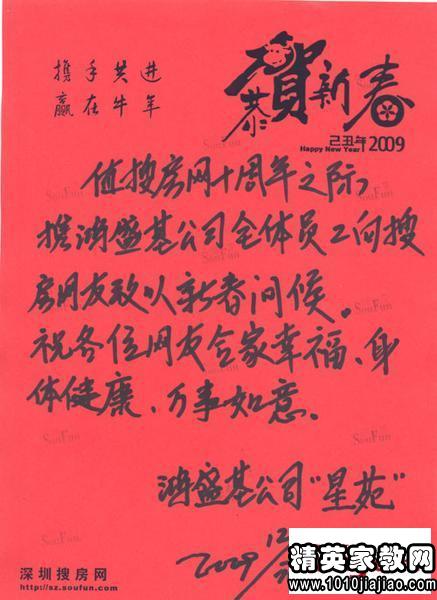 携手共进
赢在牛年
恭賀新春
己丑年 2009
Happy New Year!
值搜房网十周年之际,
携鸿盛基公司全体员工向搜
房网友致以新春问候。
祝各位网友合家幸福、身
体健康、万事如意。
鸿盛基公司“星苑”
2009
12
深圳搜房网
http://sz.soufun.com
精英家教网
www.1010jiajiao.com